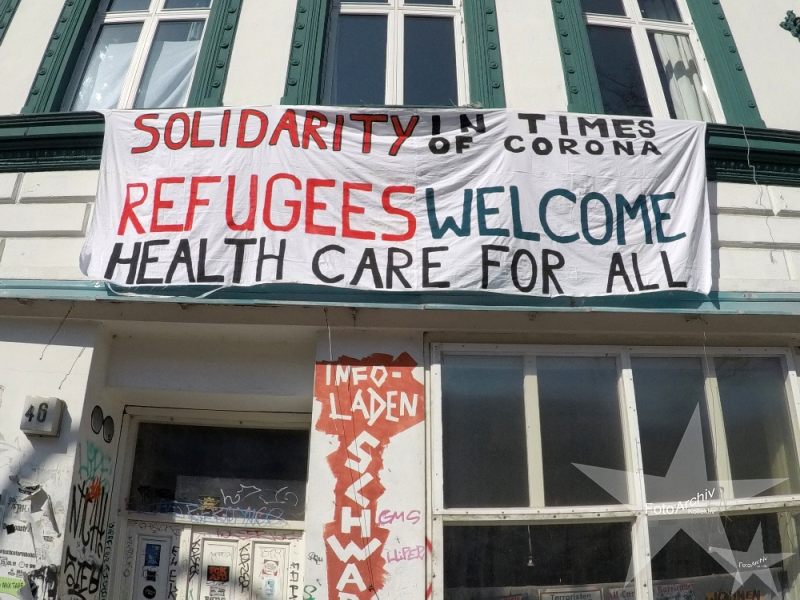 SOLIDARITY IN TIMES
OF CORONA
REFUGEES WELCOME
HEALTH CARE FOR ALL
46
INFO-
LADEN
SCHWA
GMS
FotoArchiv
Kollektiv
Terroristen